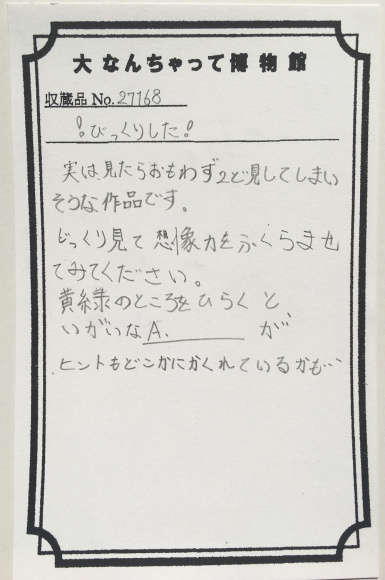 大 なんちゃって博物館
収蔵品 No. 27168
!びっくりした!
実は見たらおもわず2ど見してしまい
そうな作品です。
じっくり見て想象力をふくらませ
てみてください。
黄緑のところをひらくと
いがいな A. が
ヒントもどこかにかくれているかも…